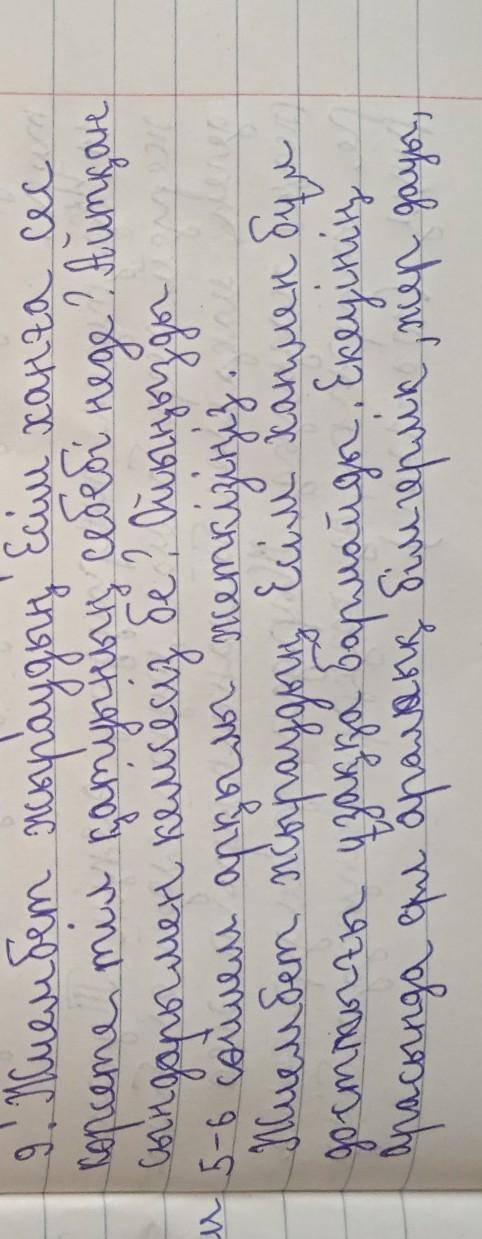 9. Жиембет жыраудың Есім ханға сес
көрсете, тіл қатуының себебі неде? Айтқан
сындарымен келісесіз бе? Ойыңызды
5-6 сөйлем арқылы жеткізіңіз.
Жиембет жыраудың Есім ханмен бұл
достығы ұзаққа бармайды. Екеуінің
арасында ел аралық билерлік, жер дауы,